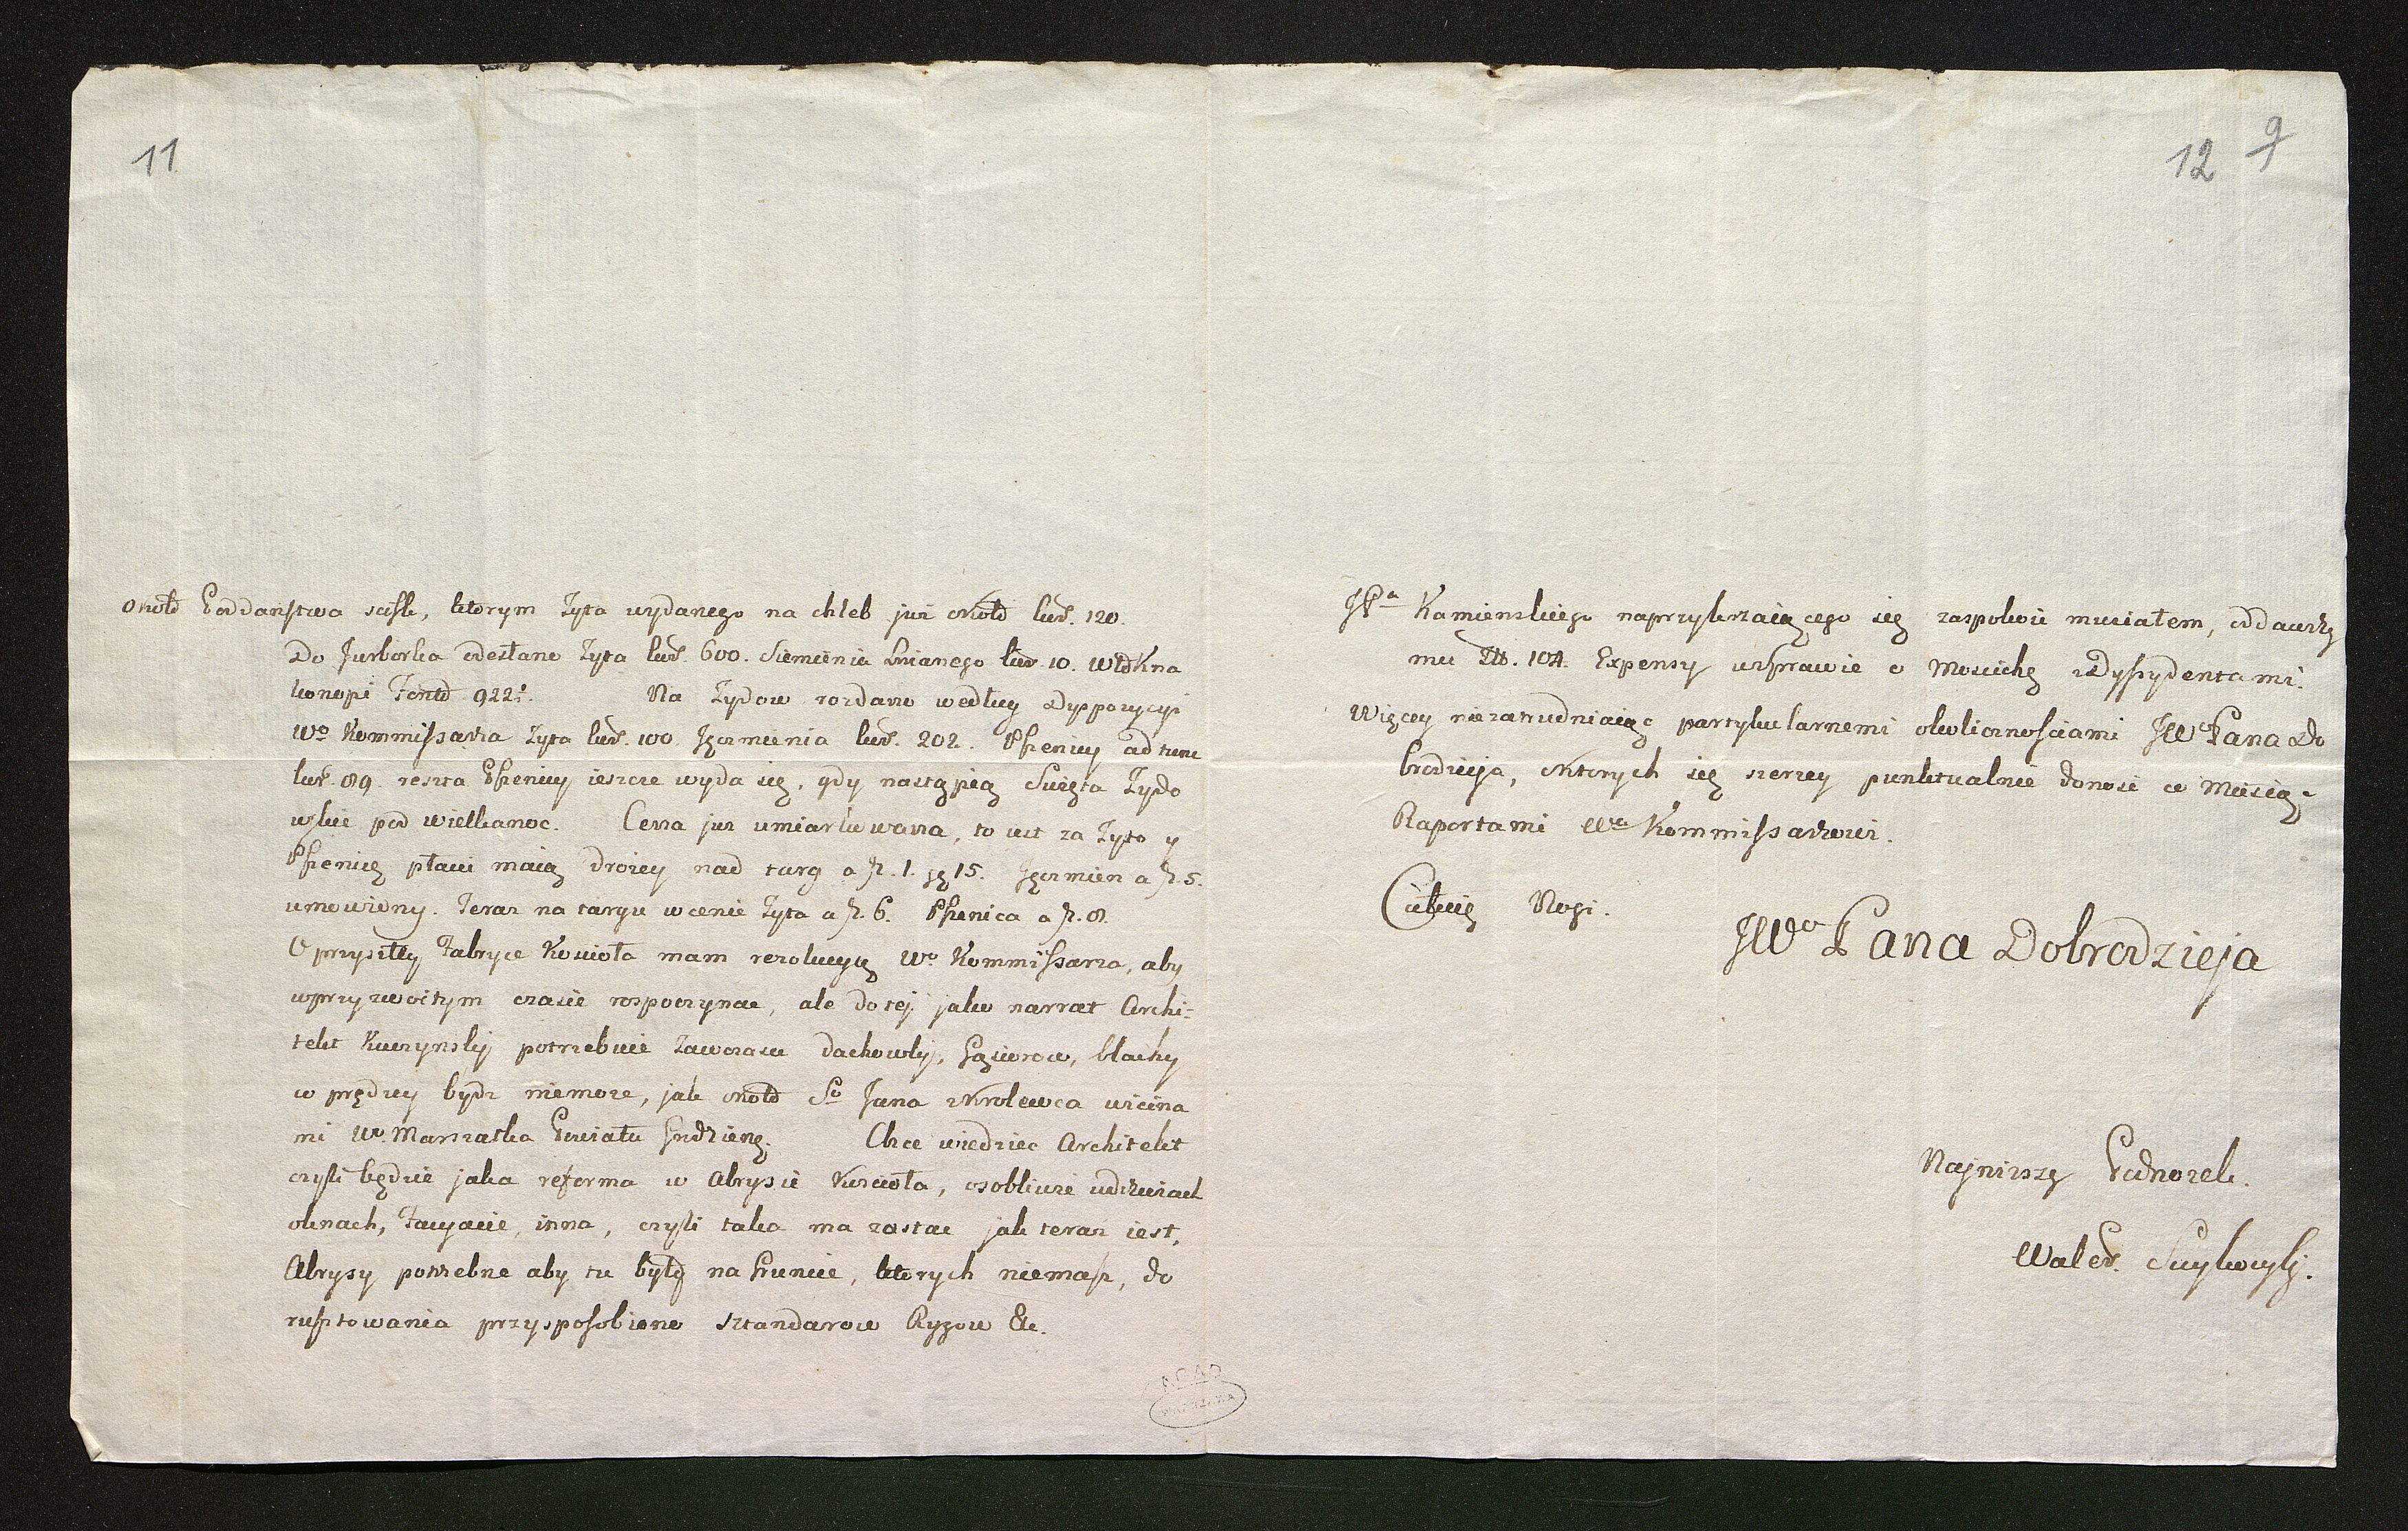 11
około Poddanstwa ściśle, ktorym Żyta wydanego na chleb już około kur. 120.
Do Jurborka odesłane Żyta kur. 600. Siemienia Lnianego kur. 10. włokna
konopi 922½. Na Żydow rozdane według Dyspozycyi
Wo Kommissarza Żyta kur. 100. Jęczmienia kur. 202. Pszenicy ad tunc
kur. 89. reszta Pszenicy ieszcze wyda się, gdy nastąpią Święta Żydo
wskie pod wielkanoc. Cena już umiarkowana, to iest za Żyto y
Pszenicę płacić maią drożey nad targ a 1. 15. Jęczmien a 5.
umowiony. Teraz na targu w cenie Żyta a 6. Pszenica a 8.
O przyszłey Fabryce Kościoła mam rezolucyą Wo Kommissarza, aby
w przyzwoitym czasie rospoczynac, ale do tej jako narrat Archi=
tekt potrzebuie zawczasu dachowki, Gąsiorow, blachy
co prędzey bydz niemoże, jak około So Jana z Krolewca wicina
mi Wo Marszałka Powiatu
Chce wiedziec Architekt
czyli będzie jaka reforma w Abrysie Kościoła, osobliwie w drzwiach
oknach, Facyacie, inna, czyli taka ma zostac jak teraz iest,
Abrysy potrzebne aby tu były na Gruncie, ktorych niemasz, do
rusztowania przysposobione sztandarow Ryzow &c.
12 9
JPa Kamienskiego naprzykrzaiącego się zaspokoic musiałem, oddawszy
mu 104. Expensy w sprawie o Moscichę z Dyssydentami.
Więcey niezatrudniaiąc partykularnemi okolicznosciami JWo Pana Do
brodzieja, o ktorych się szerzey punktualnie donosi co Miesiąc
Raportami Wo Kommissarzowi.
Całuię Nogi.
JWo Pana Dobrodzieja
Najniższy Podnożek.
Waler.
AGAD
WARSZAWA